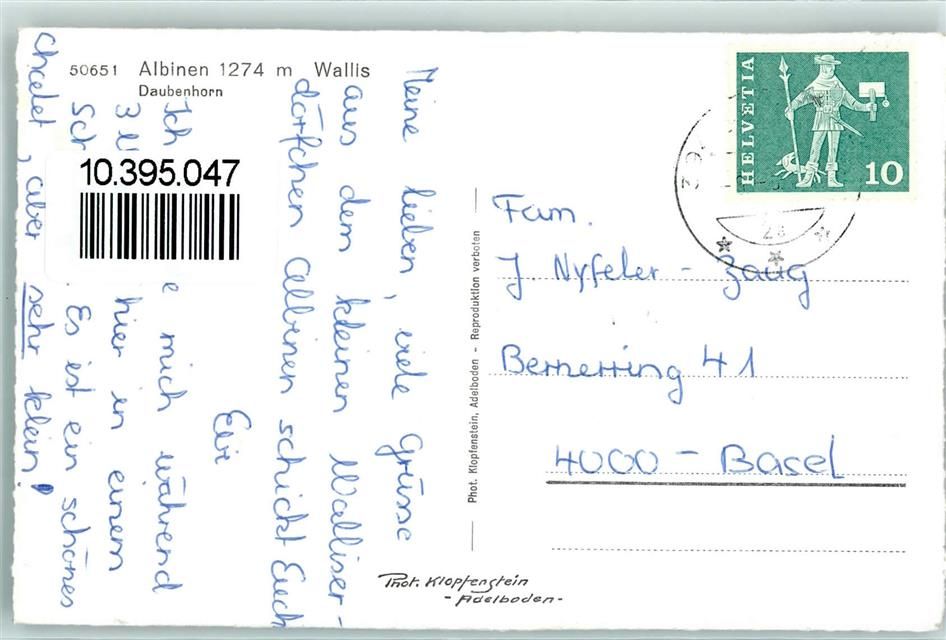 50651 Albinen 1274 m Wallis
Daubenhorn
Meine lieben, viele Grüsse
aus dem kleinen Walliser-
dörfchen Albinen schickt Euch
Elvi
Ich
e mich während
3
hier in einem
Es ist ein schönes
chalet, aber sehr klein!
10.395.047
Phot. Klopfenstein, Adelboden - Reproduktion verboten
Phot. Klopfenstein
- Adelboden -
HELVETIA
10
Fam.
J. Nyfeler - Zaug
Bernerring 41
4000 - Basel